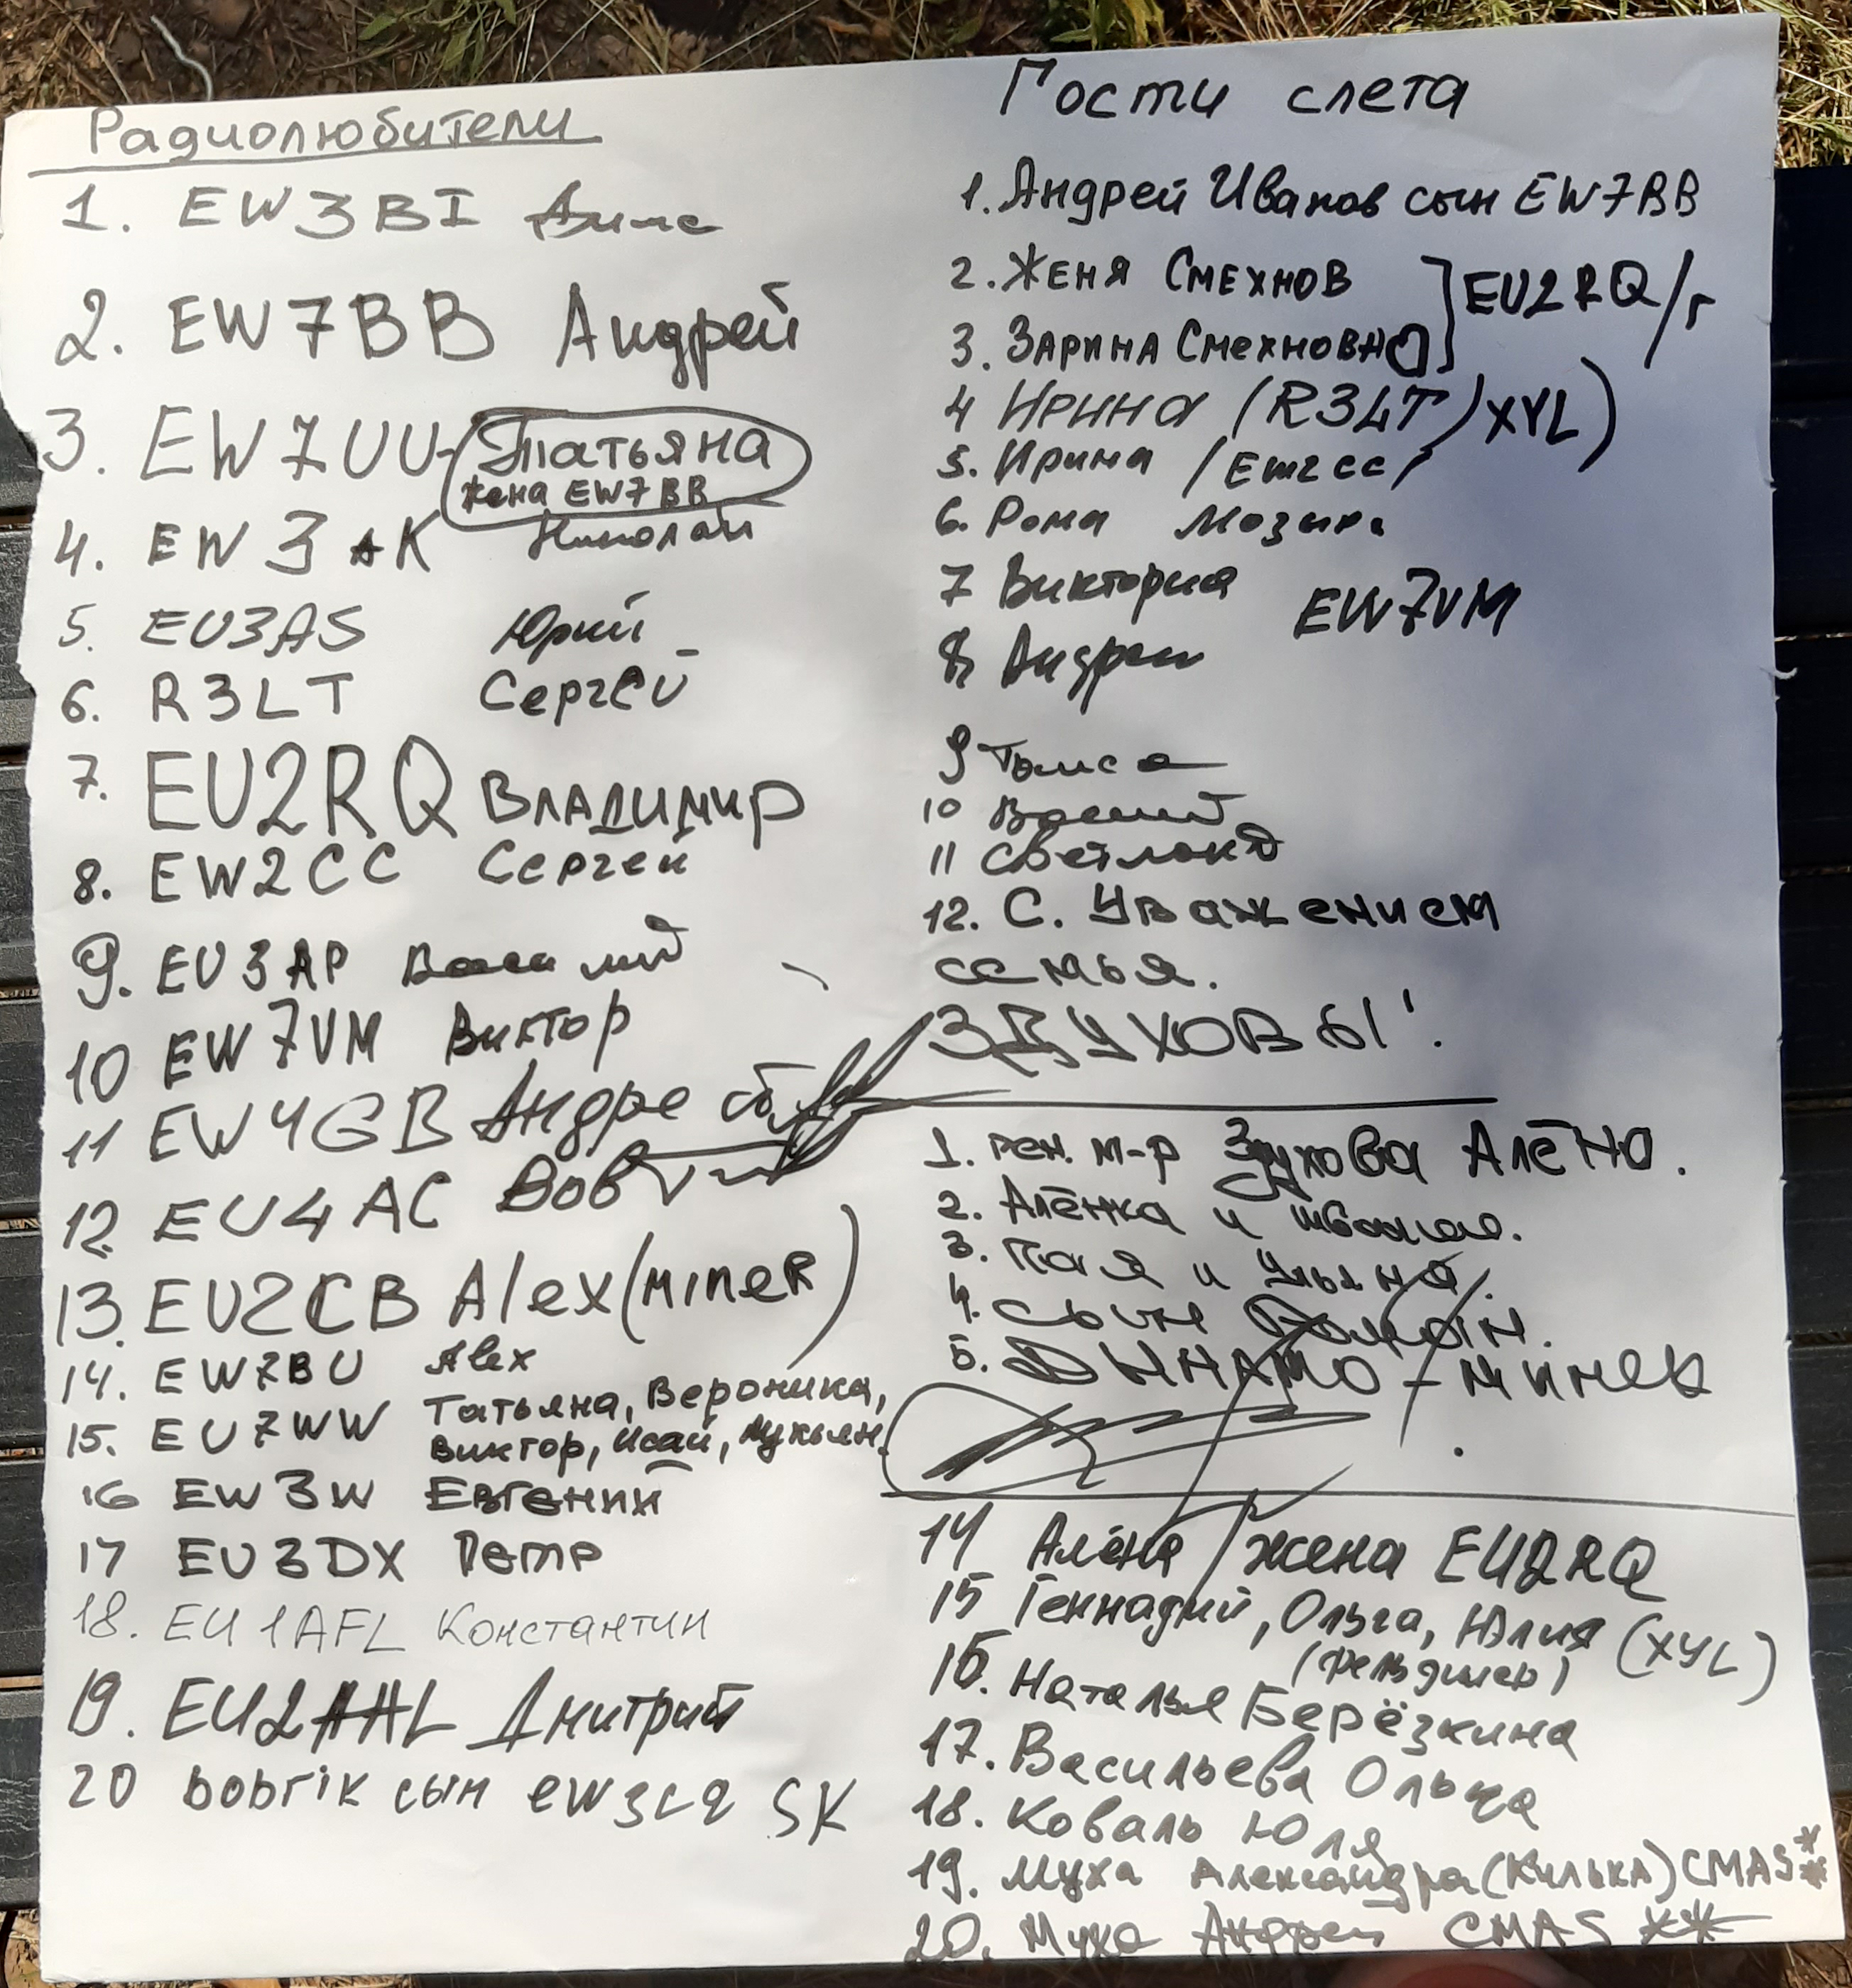 Радиолюбители
1. EW3BI
2. EW7BB Андрей
3. EW7UU - Татьяна
жена EW7BB
4. EW3AK Николай
5. EU3AS Юрий
6. R3LT Сергей
7. EU2RQ Владимир
8. EW2CC Сергей
9. EU3AP Василий
10 EW7VM Виктор
11 EW4GB Андре
12. EU4AC Вов
13. EU2CB Alex (miner)
14. EW7BU Alex
15. EU7WW Татьяна, Вероника,
Виктор, Исай, Лукьян.
16 EW3W Евгений
17 EU3DX Петр
18. EU1AFL Константин
19. EU2AHL Дмитрий
20 вовгік сын ew3LQ SK
Гости слета
1. Андрей Иванов сын EW7BB
2. Женя Смехнов
EU2RQ/г
3. Зарина Смехновно
4 Ирина (R3LT) XYL)
5. Ирина /EW2CC/
6. Рома
7 Виктория
EW7VM
8 Андрей
9
10
11 Светлана
12. С. Уважением
семья.
ЗДУХОВЫ!
1. ген. м-р Здухова Алёна.
2. Алёнка и
3. Катя и
4. Сын
5. Дынамо - Минск
14 Алёна /жена EU2RQ
15 Геннадий, Ольга, Юлия (XYL)
(фельдшер)
16. Наталья Берёзкина
17. Васильева Ольга
18. Коваль Юля
19. Муха Александра (Килька) CMAS**
20. Муха Андрей CMAS **